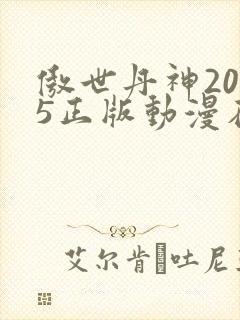 傲世丹神20
5正版動漫
艾尔肯·吐尼